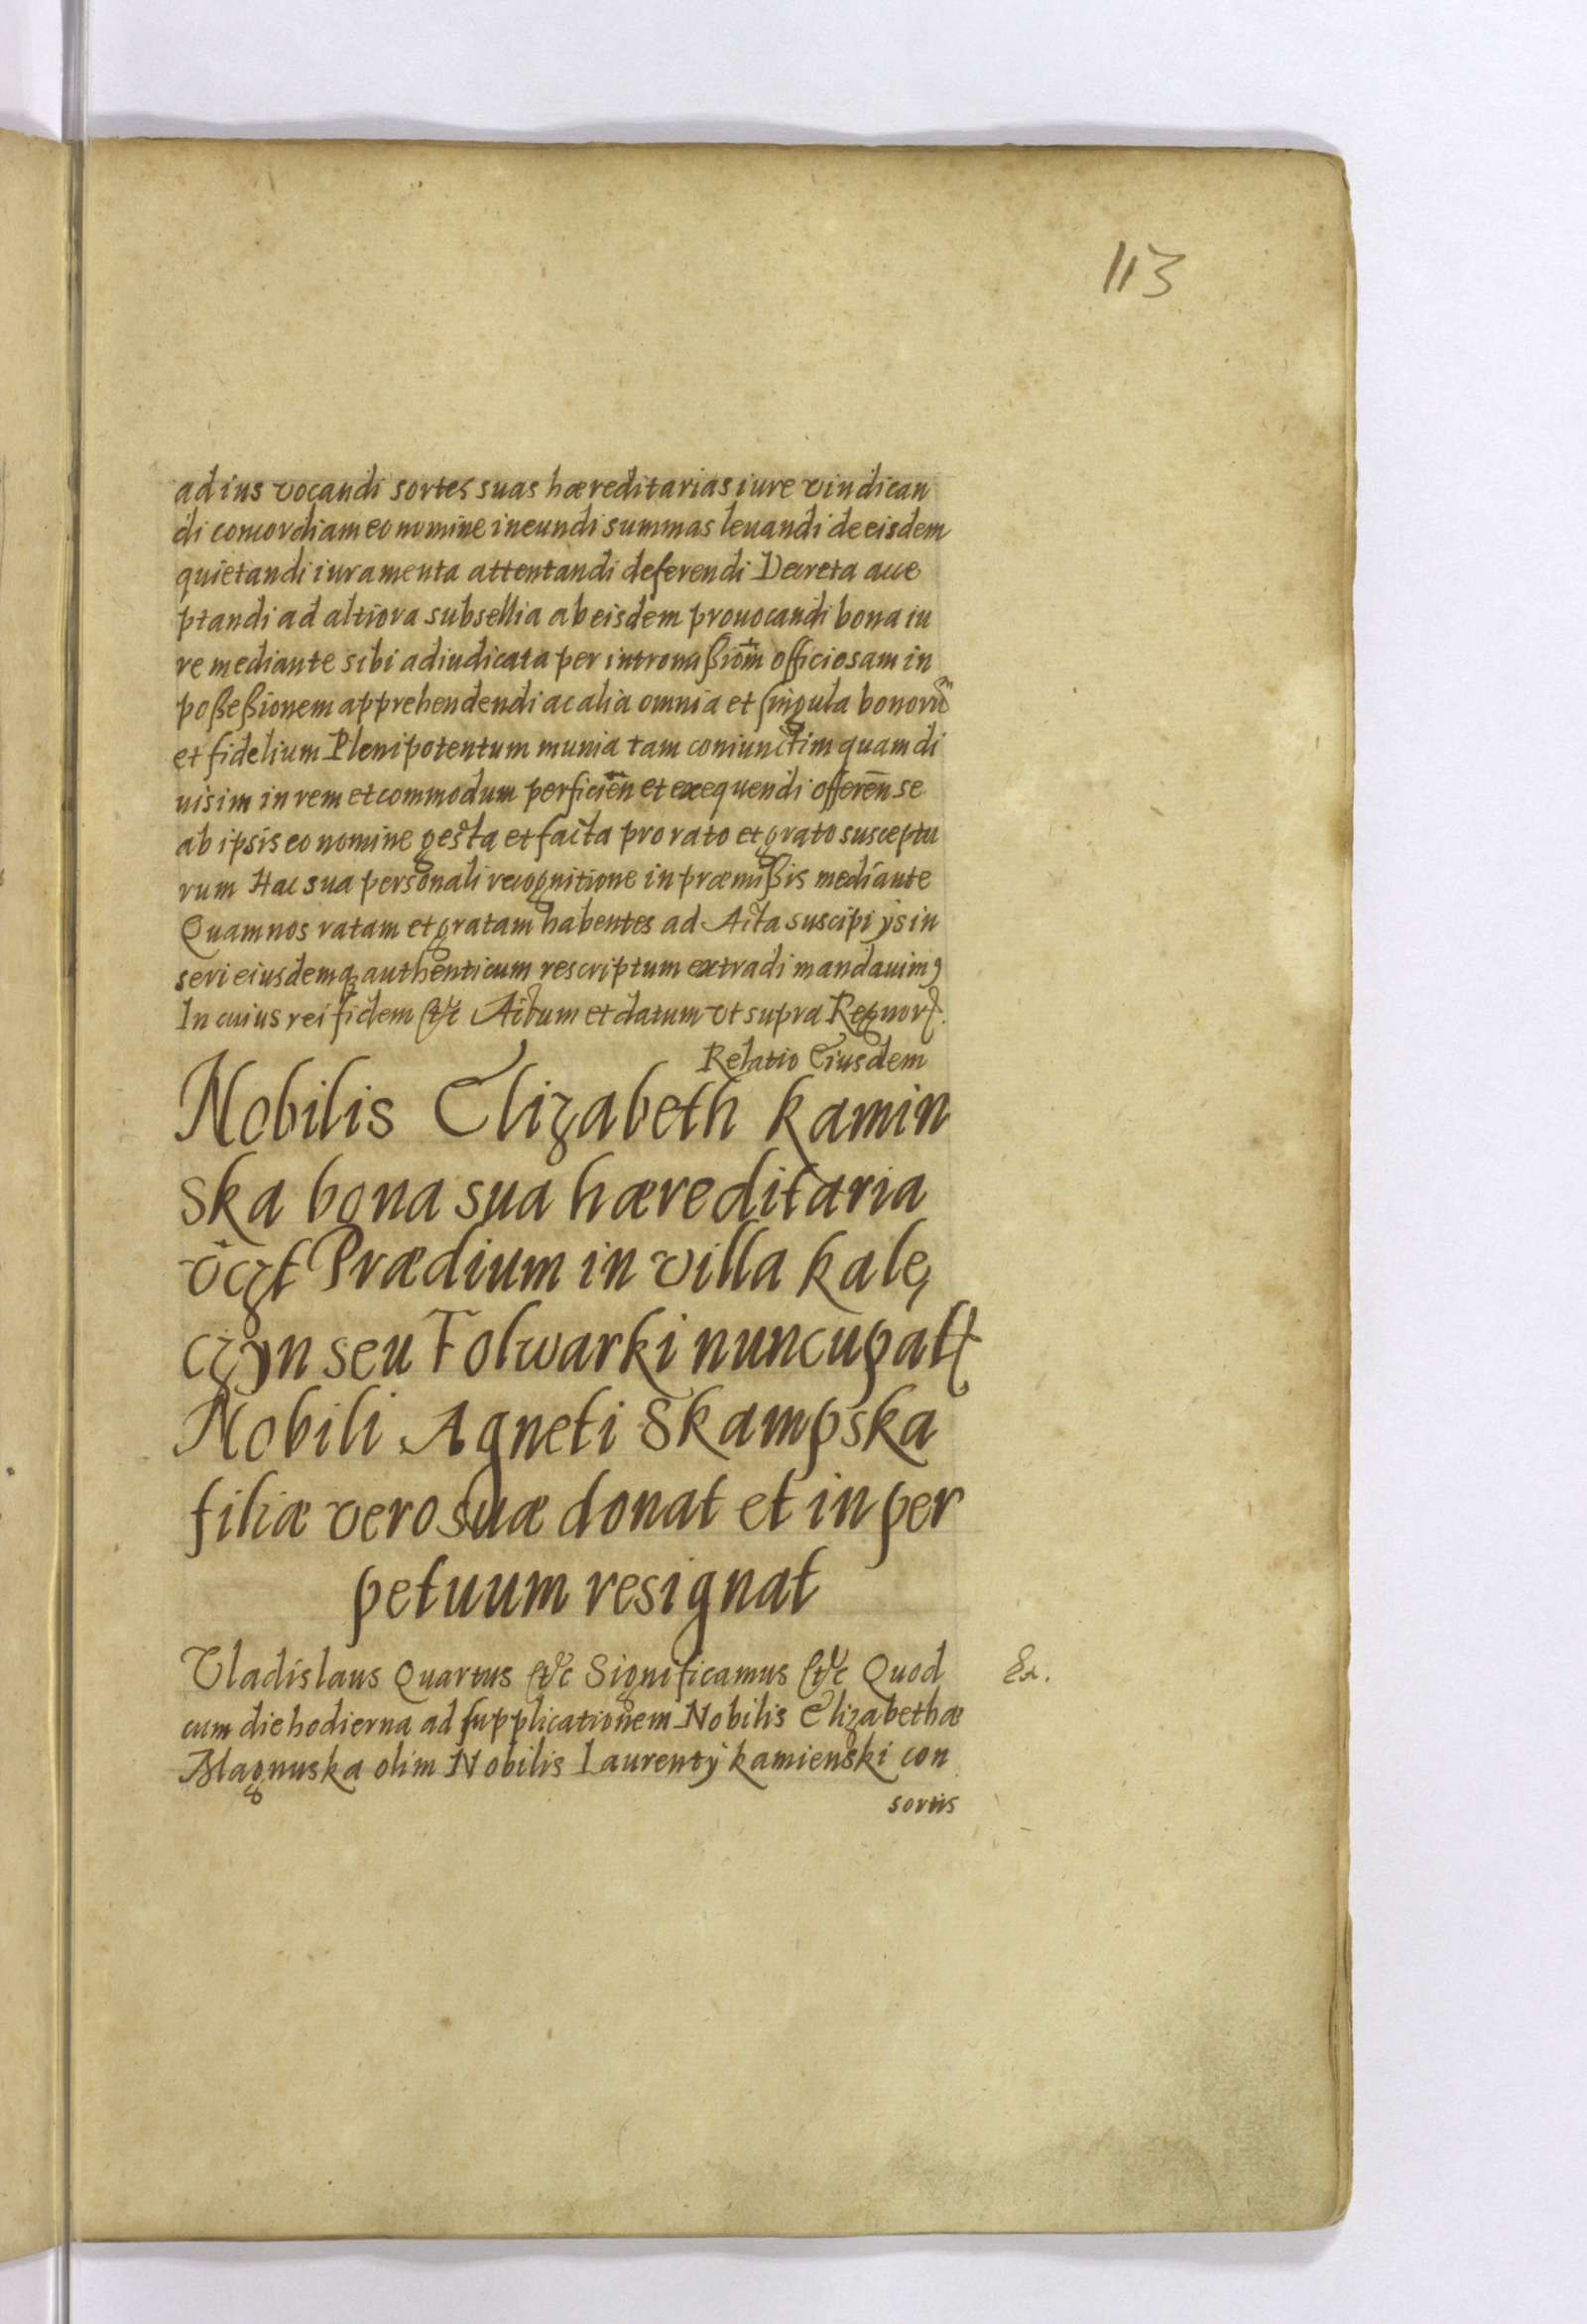 113
ad ius vocandi sortes suas hæreditarias iure vindican
di concordiam eo nomine ineundi summas leuandi de eisdem
quietandi iuramenta attentandi deferendi Decreta acce
ptandi ad altiora subsellia ab eisdem prouocandi bona iu
re mediante sibi adiudicata per intromißiom̄ officiosam in
poßeßionem apprehendendi ac alia omnia et singula bonorū
et fidelium Plenipotentum munia tam coniunctim quam di
uisim in rem et commodum perficien̄ et exequendi offeren̄ se
ab ipsis eo nomine gesta et facta pro rato et grato susceptu
rum Hac sua personali recognitione in præmißis mediante
Quam nos ratam et gratam habentes ad Acta suscipi ijs in
seri eiusdemq; authenticum rescriptum extradi mandauim9
In cuius rei fidem etc Actum et datum vt supra Regnorꝭ.
Relatio Eiusdem
Nobilis Elizabeth Kamin
ska bona sua hæreditaria
vczt Prædium in villa Kalę
czyn seu Folwarki nuncupatꝭ
Nobili Agneti Skampska
filiæ vero suæ donat et in per
petuum resignat
Vladislaus Quartus etc Significamus etc Quod
Ex.
cum die hodierna ad supplicationem Nobilis Elizabethæ
Magnuska olim Nobilis Laurentij Kamienski con
sortis